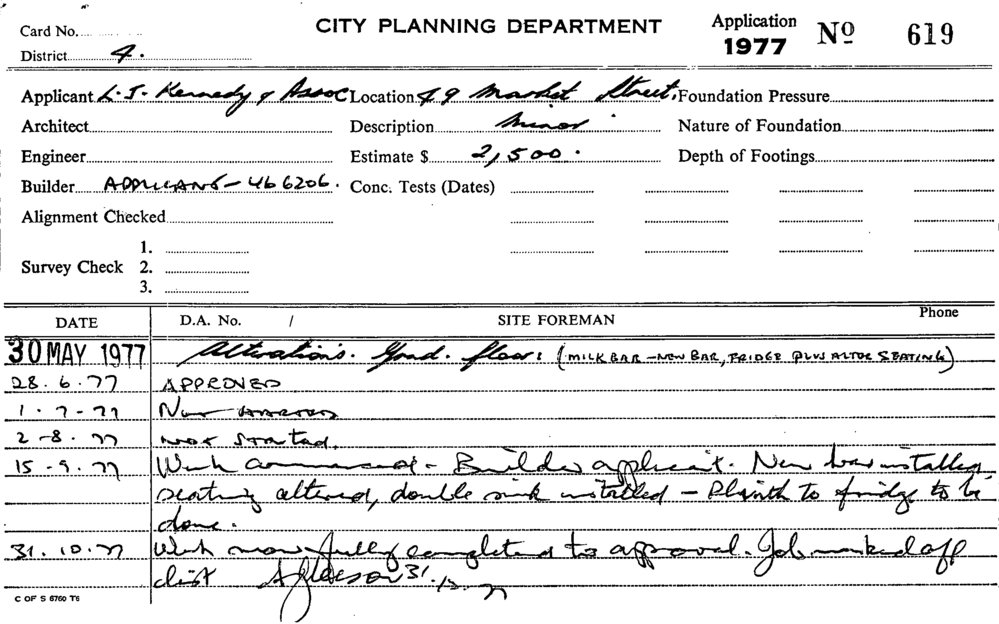 Card No.
CITY PLANNING DEPARTMENT
Application 1977 Nº 619
District 4.
Applicant L.J. Kennedy & Assoc Location 49 Market Street. Foundation Pressure
Architect Description Minor Nature of Foundation
Engineer Estimate $ 2,500. Depth of Footings
Builder APPLICANT - 466206. Conc. Tests (Dates)
Alignment Checked
1.
Survey Check 2.
3.
DATE D.A. No. / SITE FOREMAN Phone
30 MAY 1977 Alterations. Grnd. floor: (MILK BAR - NEW BAR, FRIDGE PLUS ALTER SEATING)
28.6.77 APPROVED
1.7.77 Not started
2-8.77 not started.
15.9.77 Work commenced - Builder applicant. New bar installed
seating altered, double sink installed - Plinth to fridge to be
done.
31.10.77 Work now fully completed to approval. Job marked off
list 31.10.77
C OF S 6760 T6